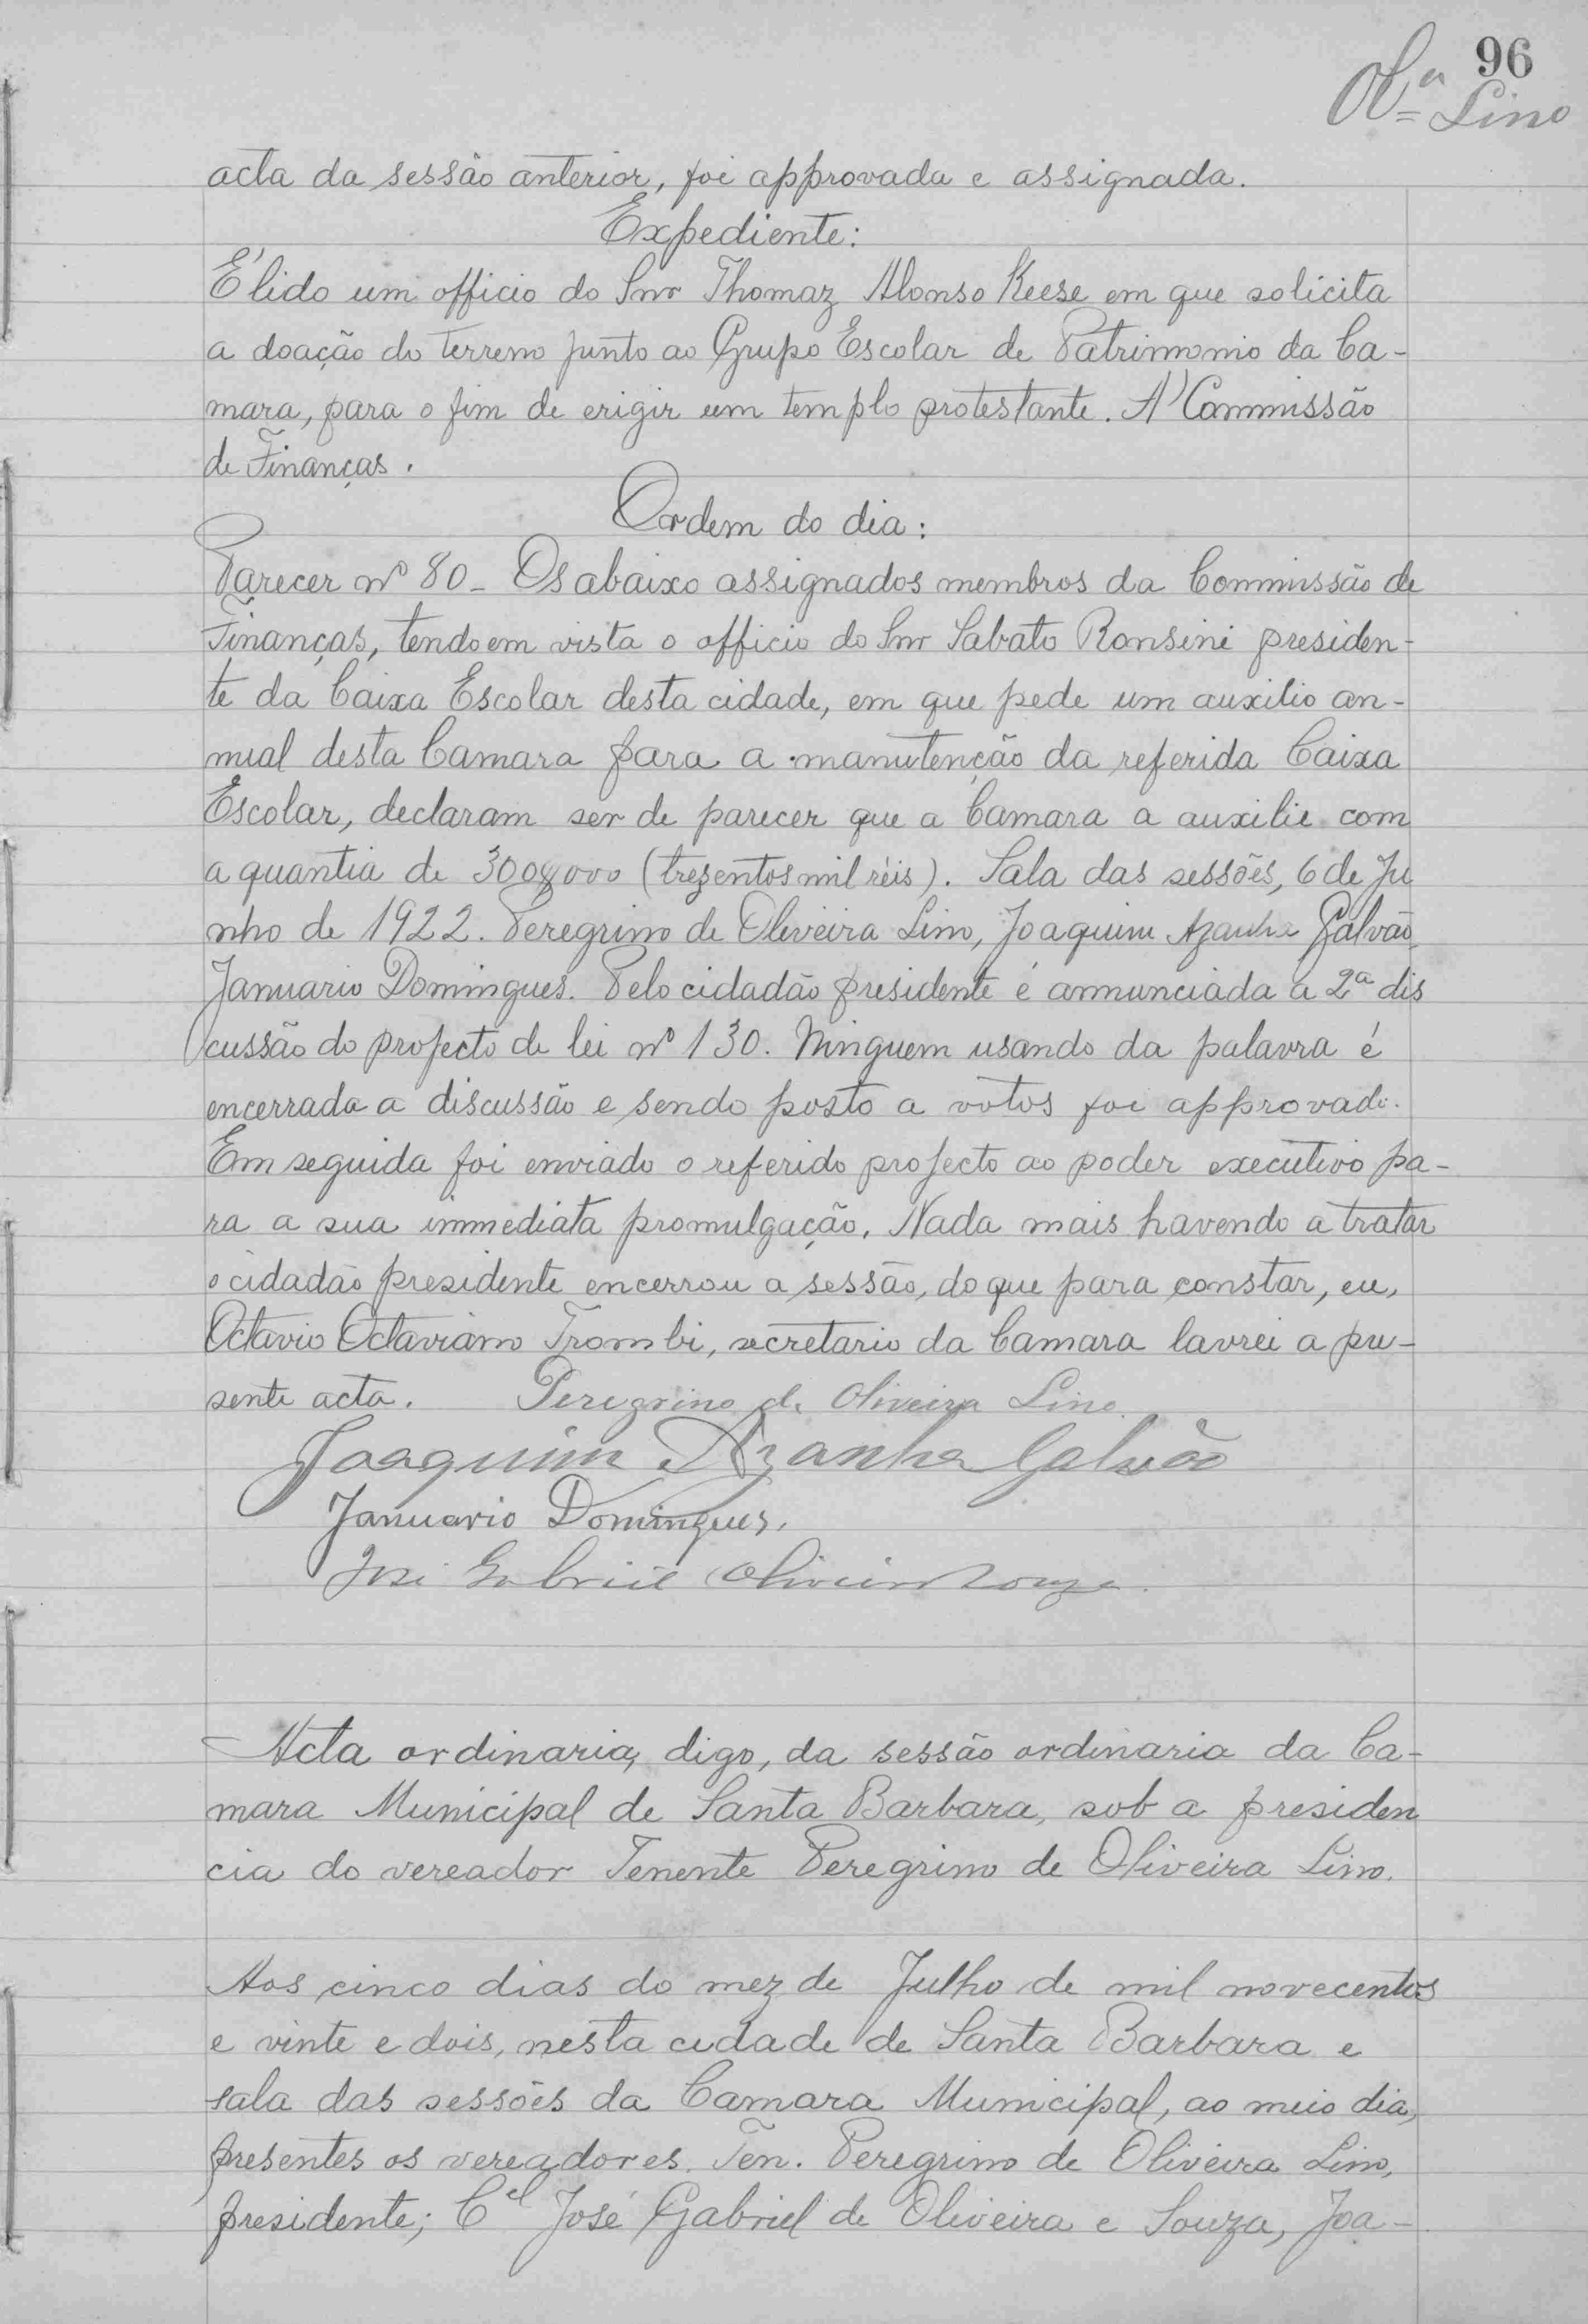 96
Olª Lino
acta da sessão anterior, foi approvada e assignada.
Expediente:
É lido um officio do Snr Thomaz Alonso Keese em que solicita
a doação do terreno junto ao Grupo Escolar de Patrimonio da Ca-
mara, para o fim de erigir um templo protestante. A' Commissão
de Finanças.
Ordem do dia:
Parecer nº 80 - Os abaixo assignados membros da Commissão de
Finanças, tendo em vista o officio do Snr Sabato Ronsini presiden-
te da Caixa Escolar desta cidade, em que pede um auxilio an-
nual desta Camara para a manutenção da referida Caixa
Escolar, declaram ser de parecer que a Camara a auxilie com
a quantia de 300$000 (trezentos mil réis). Sala das sessões, 6 de Ju
nho de 1922. Peregrino de Oliveira Lino, Joaquim Azanha Galvão
Januario Domingues. Pelo cidadão presidente é annunciada a 2ª dis
cussão do projecto de lei nº 130. Ninguem usando da palavra é
encerrada a discussão e sendo posto a votos foi approvado.
Em seguida foi enviado o referido projecto ao poder executivo pa-
ra a sua immediata promulgação. Nada mais havendo a tratar
o cidadão presidente encerrou a sessão, do que para constar, eu,
Octavio Octaviano Trombi, secretario da Camara lavrei a pre-
sente acta. Peregrino de Oliveira Lino
Joaquim Azanha Galvão
Januario Domingues.
José Gabriel Oliveira Souza.
Acta ordinaria, digo, da sessão ordinaria da Ca-
mara Municipal de Santa Barbara, sob a presiden
cia do vereador Tenente Peregrino de Oliveira Lino.
Aos cinco dias do mez de Julho de mil novecentos
e vinte e dois, nesta cidade de Santa Barbara e
sala das sessões da Camara Municipal, ao meio dia,
presentes os vereadores Ten. Peregrino de Oliveira Lino,
presidente; Cel José Gabriel de Oliveira e Souza, Joa-